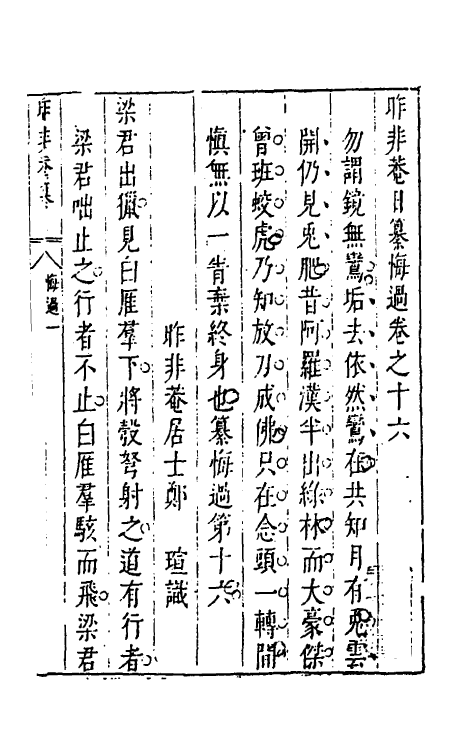 昨非菴日纂悔過卷之十六
勿謂鏡無鸞垢去依然鸞在共知月有兎雲
開仍見兎肥昔阿羅漢半出綠林而大豪傑
曾班蛟虎乃知放刀成佛只在念頭一轉間
愼無以一眚棄終身也纂悔過第十六
昨非菴居士鄭 瑄識
梁君出獵見白雁羣下將彀弩射之道有行者
梁君咄止之行者不止白雁羣駭而飛梁君
昨非菴纂
悔過一